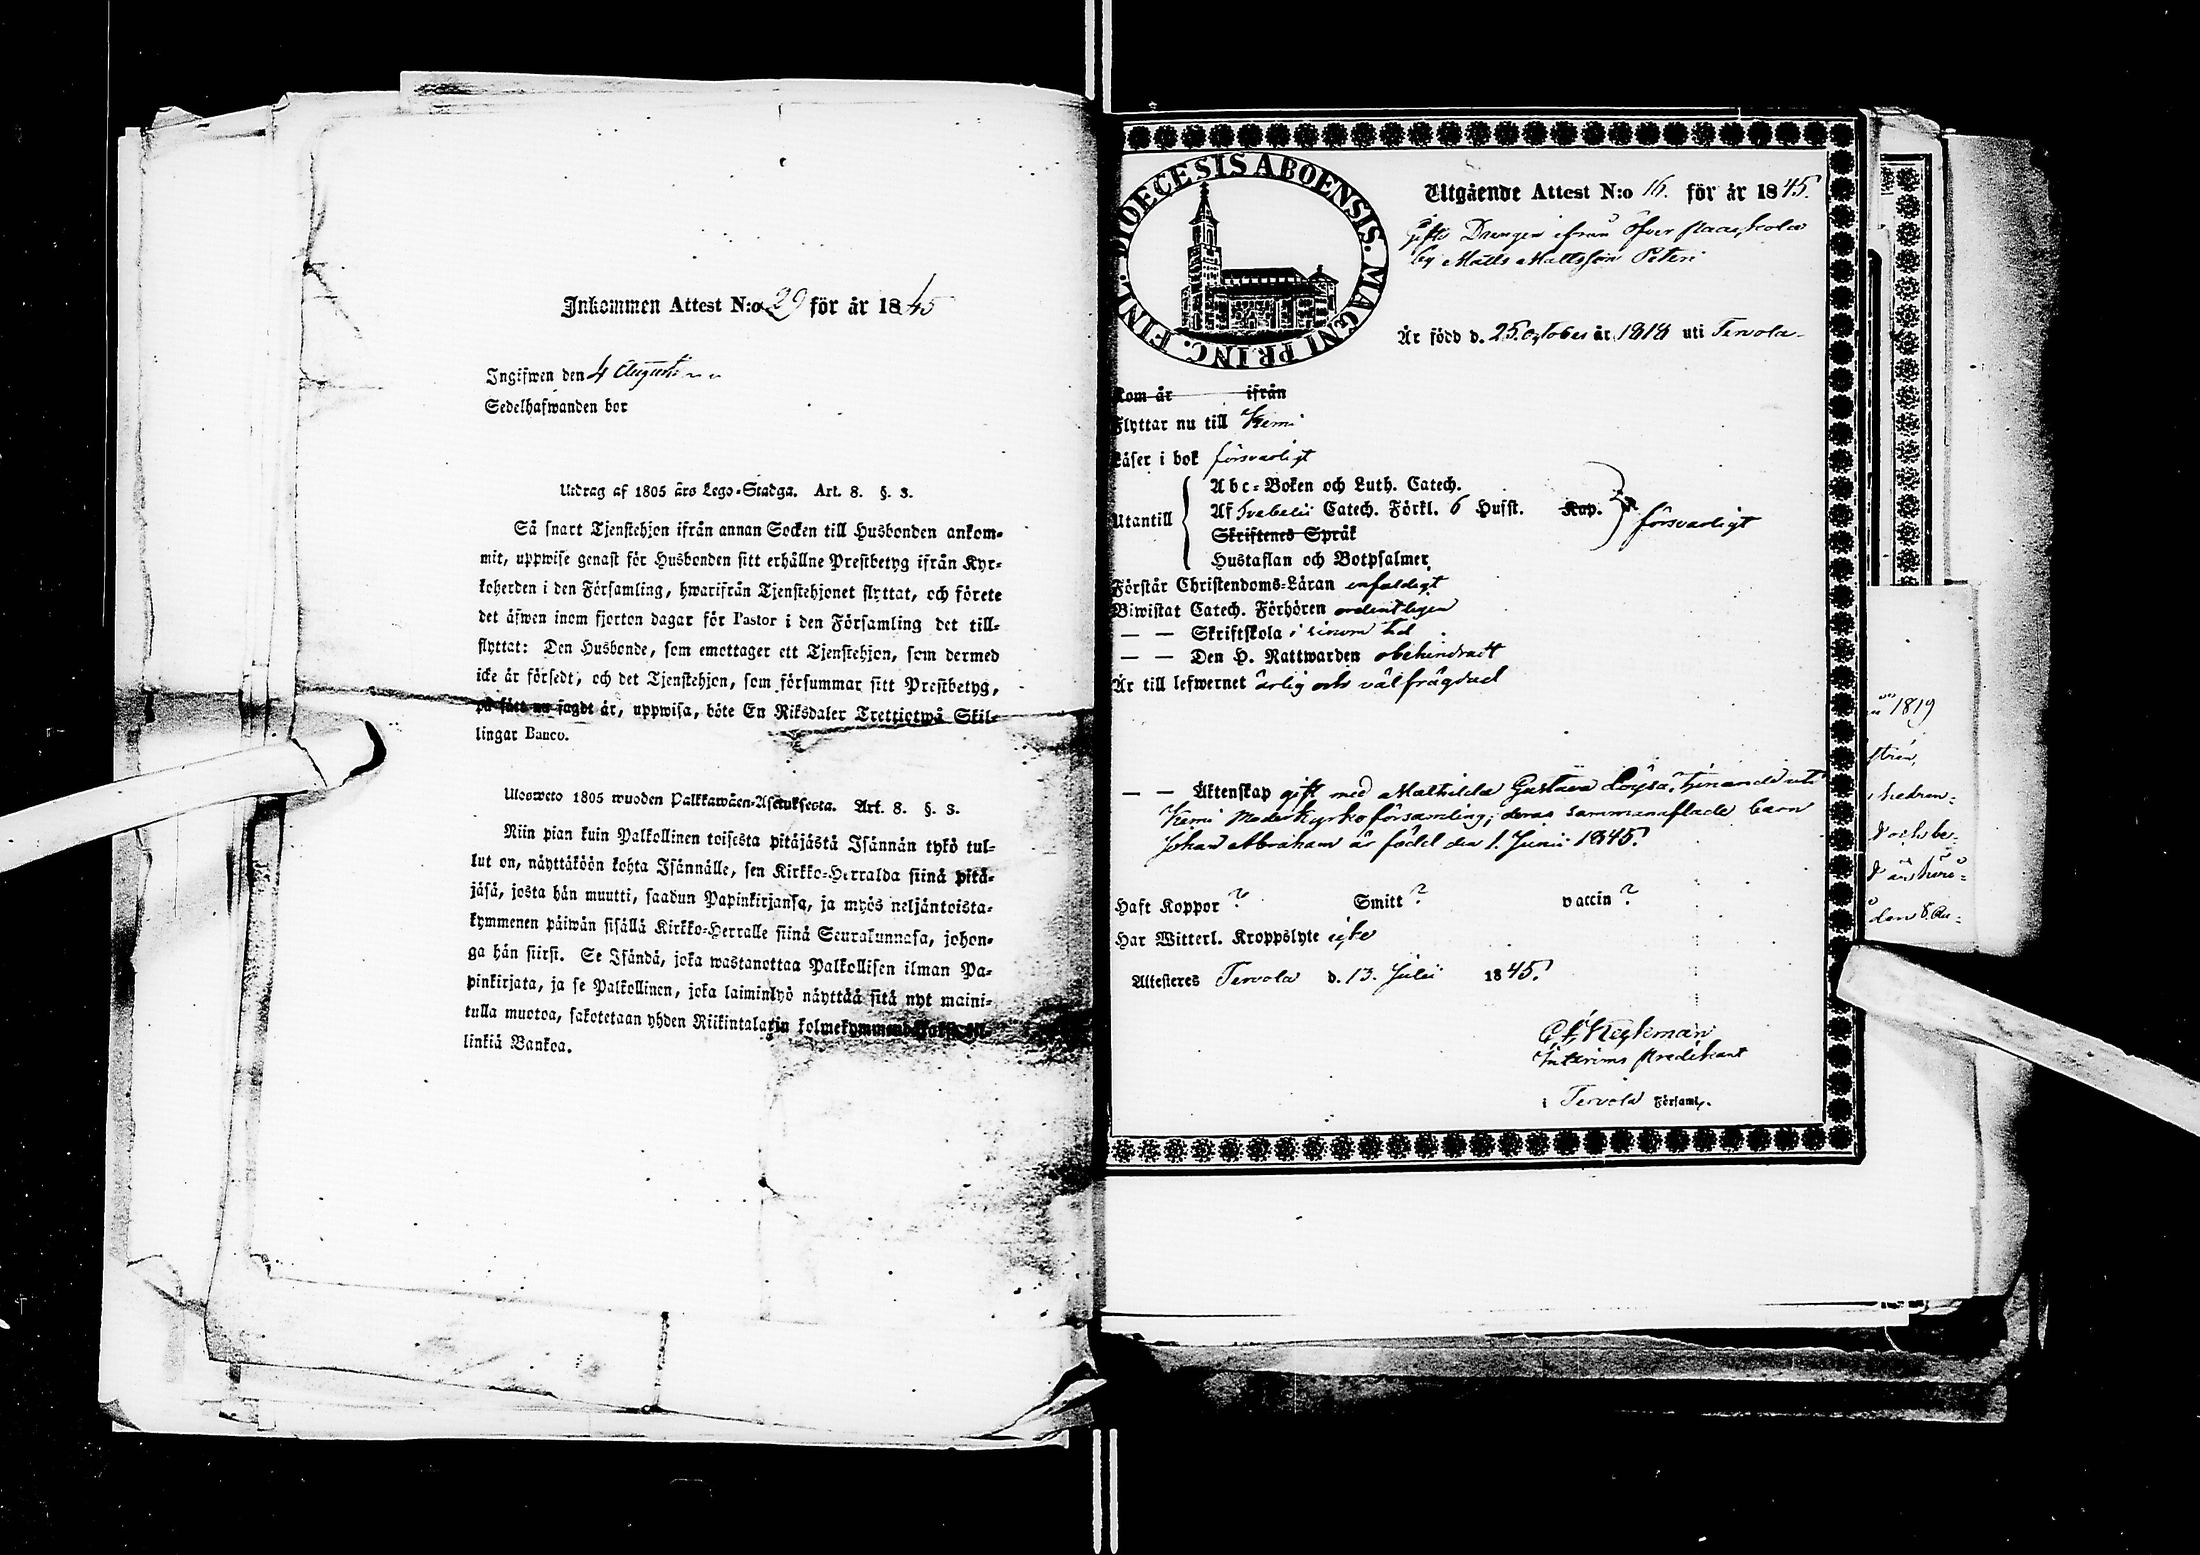 Inkommen Attest N:o 29 för år 1845
Ingifwen den 4 Augusti
Sedelhafwanden bor
Utdrag af 1805 års Lego-Stadga. Art. 8. §. 3.
Så snart Tjenstehjon ifrån annan Socken till Husbonden ankom-
mit, uppwise genast för Husbonden sitt erhållne Prestbetyg ifrån Kyr-
koherden i den Församling, hwarifrån Tjenstehjonet flyttat, och förete
det äfwen inom fjorton dagar för Pastor i den Församling det till-
flyttat: Den Husbonde, som emottager ett Tjenstehjon, som dermed
icke är försedt, och det Tjenstehjon, som försummar sitt Prestbetyg,
på sätt nu sagdt är, uppwisa, böte En Riksdaler Trettiotwå Skil-
lingar Banco.
Ulosweto 1805 wuoden Palkkawäen-Asetuksesta. Art. 8. §. 3.
Niin pian kuin Palkollinen toisesta pitäjästä Isännän tykö tul-
lut on, näyttäköön kohta Isännälle, sen Kirkko-Herralda siinä pitä-
jäsä, josta hän muutti, saadun Papinkirjansa, ja myös neljäntoista-
kymmenen päiwän sisällä Kirkko-Herralle siinä Seurakunnasa, johon-
ga hän siirsi. Se Isändä, joka wastanottaa Palkollisen ilman Pa-
pinkirjata, ja se Palkollinen, joka laiminlyö näyttää sitä nyt maini-
tulla muotoa, sakotetaan yhden Riikintalarin kolmekymmendä
linkiä Bankoa.
DIOECESIS ABOENSIS. MAGNI PRINC. FINL.
Utgående Attest N:o 16. för år 1845.
gifte Drengen ifrån Öfver
by Matts Mattsson Peteri
Är född d. 25. October år 1818 uti Tervola
Kom år ifrån
Flyttar nu till Kemi
Läser i bok försvarligt
Utantill
Abc-Boken och Luth. Catech.
Af Svebelii Catech. Förkl. 6 Hufst. Kap.
försvarligt
Skriftenes Språk
Hustaflan och Botpsalmer
Förstår Christendoms-Läran enfaldigt
Biwistat Catech. Förhören ordentligen
— — Skriftskola i sinom tid
— — Den H. Nattwarden obehindradt
Är till lefwernet ärlig och välfrägdad
— — Äktenskap gift med Mathilda Gustava Loysa, tjenande uti
Kemi Moderkyrkoförsamling; deras sammanaflade barn
Johan Abraham är född den 1. Junii 1845.
Haft Koppor ? Smitt ? vaccin ?
Har Witterl. Kroppslyte icke
Attesteres Tervola d. 13. Julii 1845.
Interims Predikant
i Tervola Församl.
1819
den 8. Au-